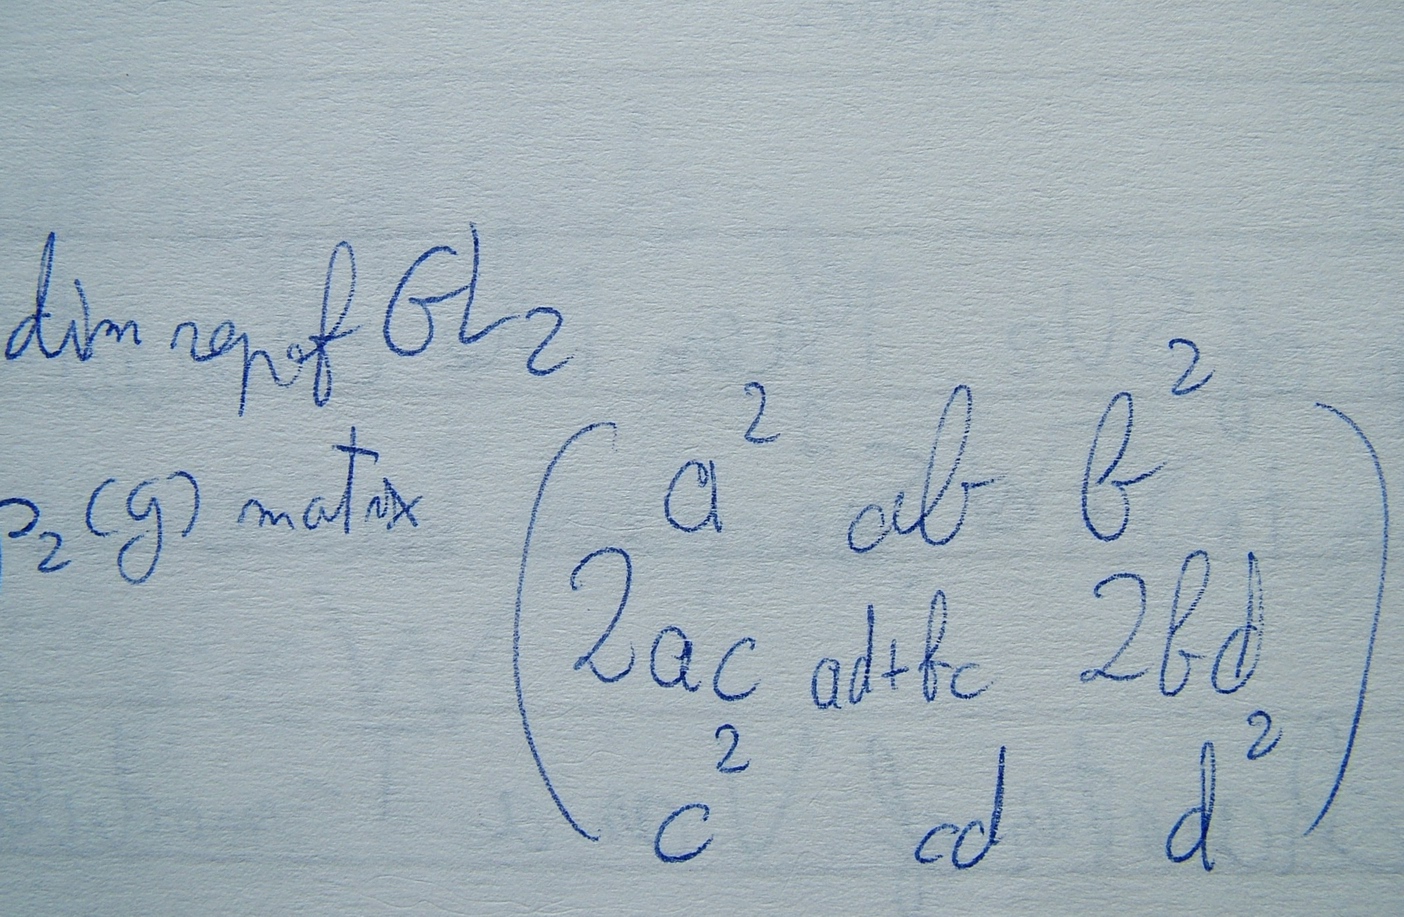 dim rep of GL₂
ρ₂(g) matrix
a² ab b²
2ac ad+bc 2bd
c² cd d²